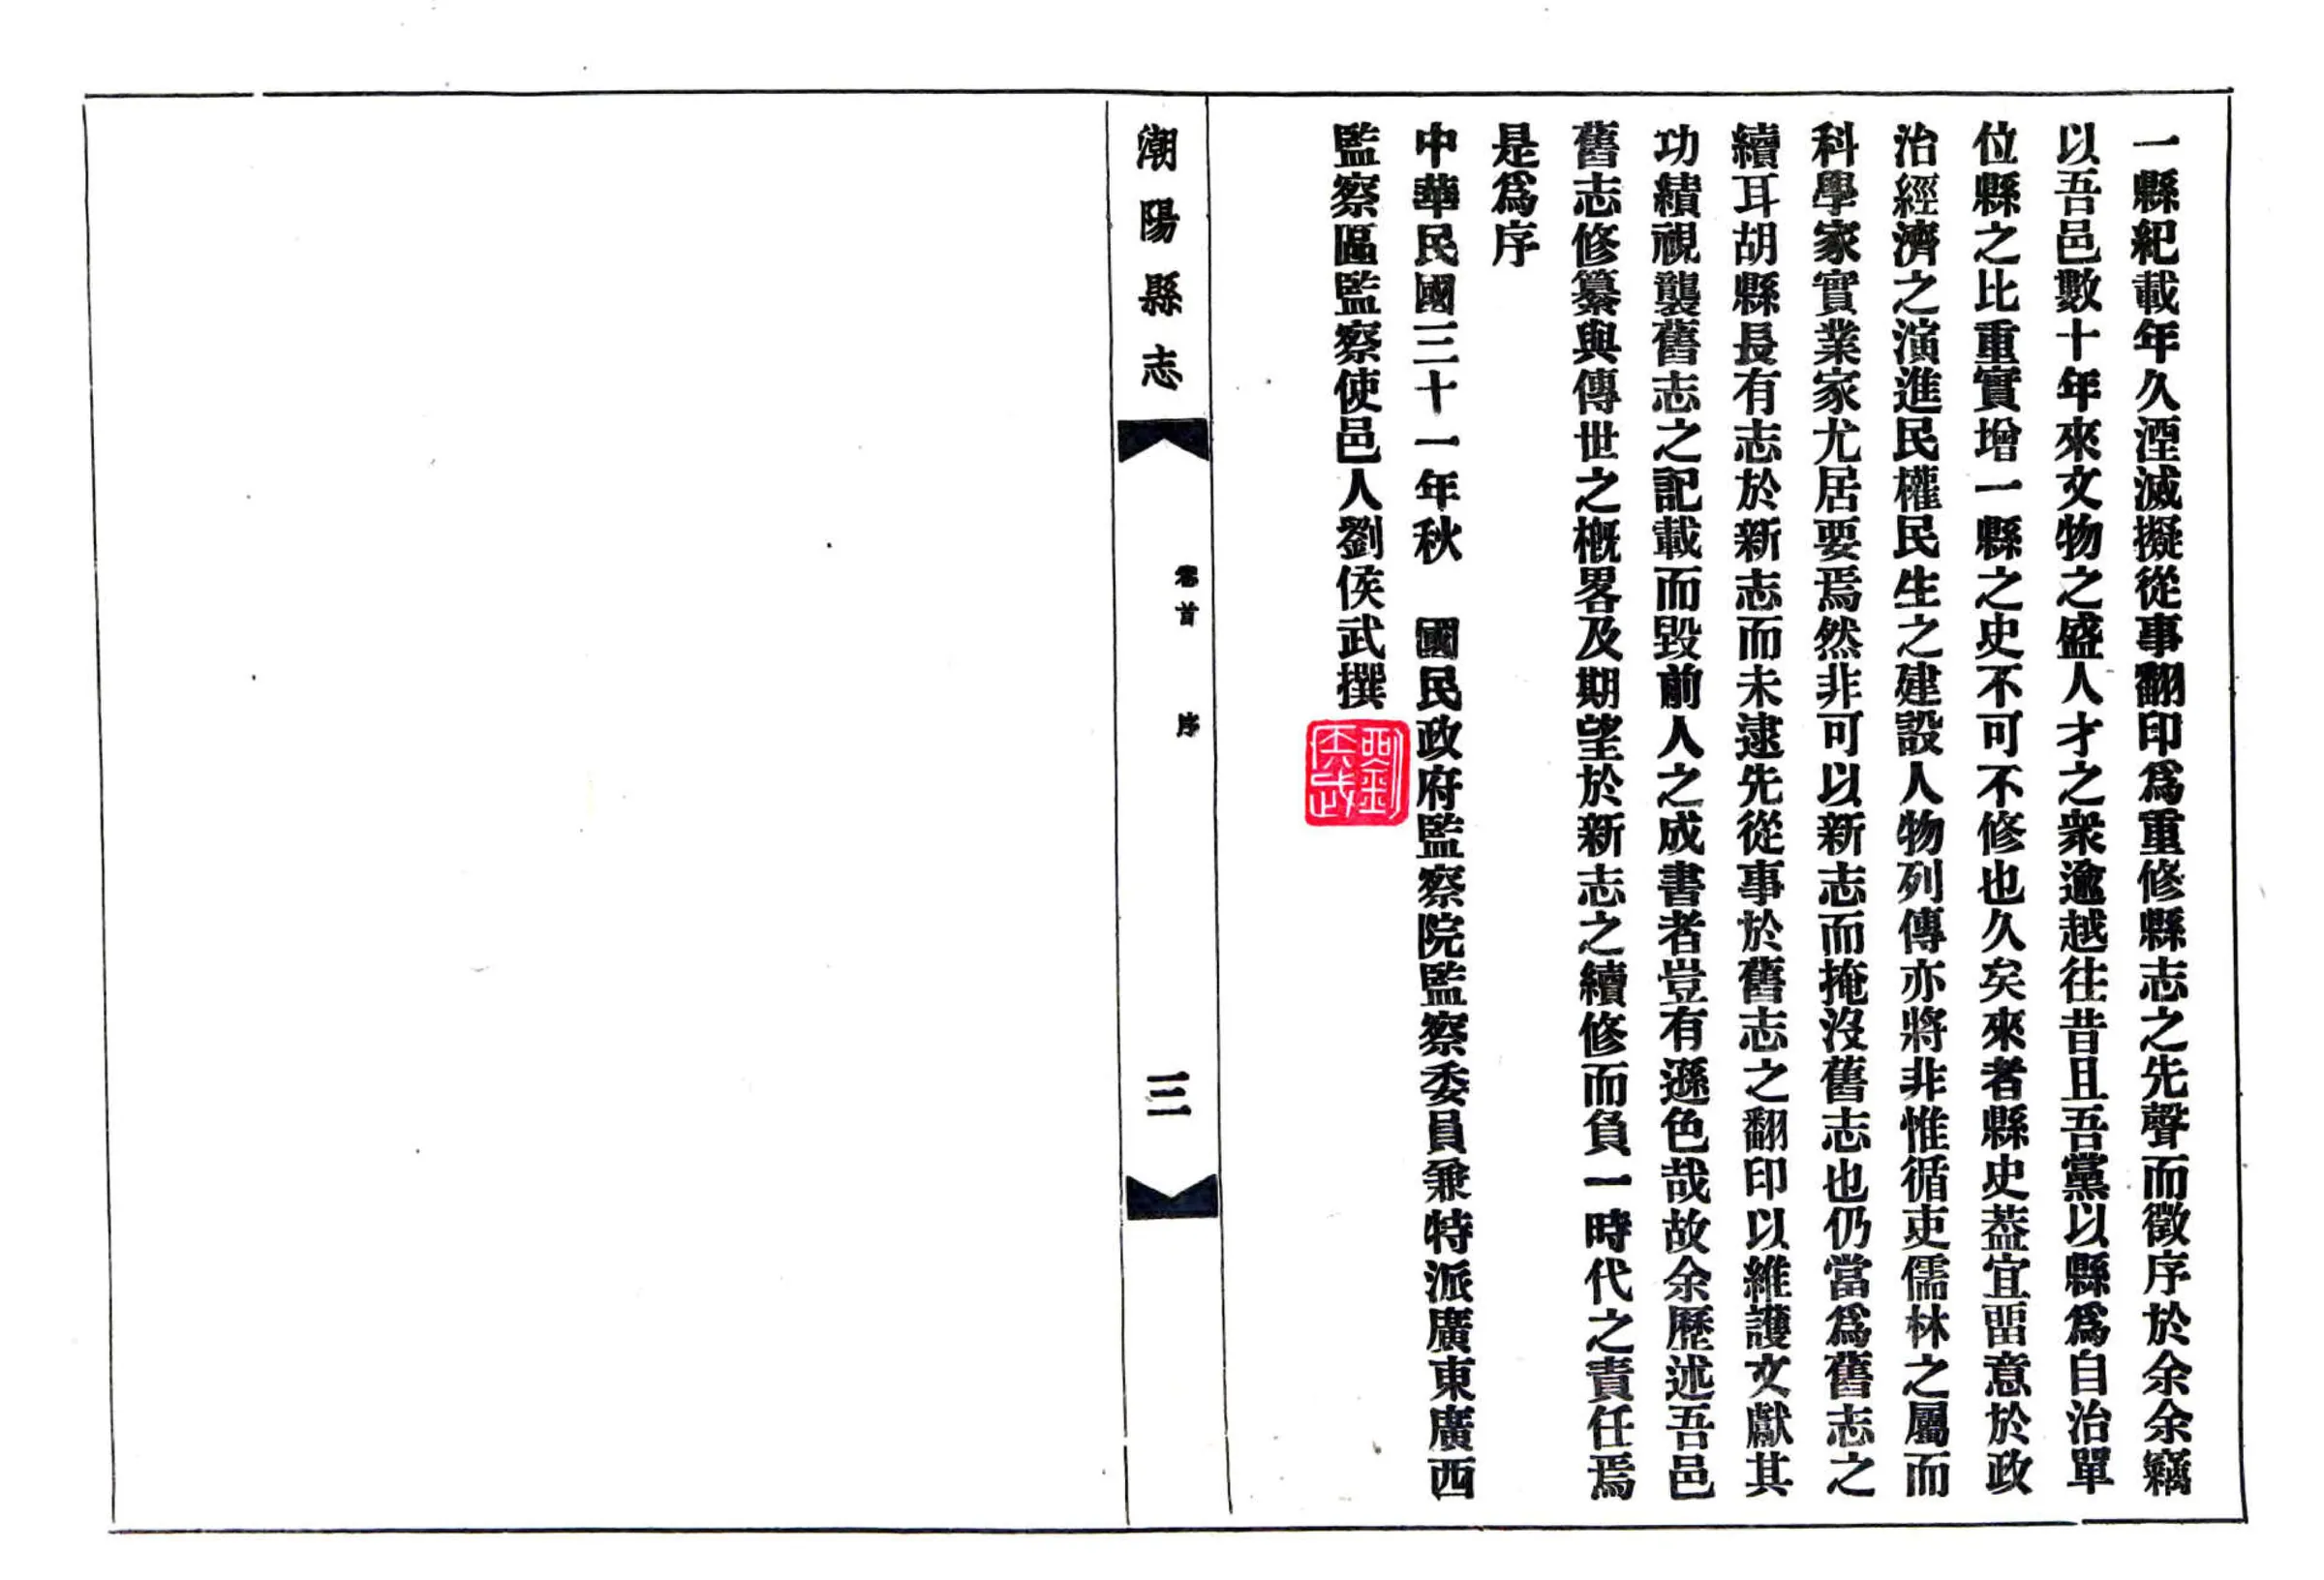 一縣紀載年久湮滅擬從事翻印爲重修縣志之先聲而徵序於余余竊
以吾邑數十年來文物之盛人才之衆逾越往昔且吾黨以縣爲自治單
位縣之比重實增一縣之史不可不修也久矣來者縣史葢宜畱意於政
治經濟之演進民權民生之建設人物列傳亦將非惟循吏儒林之屬而
科學家實業家尤居要焉然非可以新志而掩沒舊志也仍當爲舊志之
續耳胡縣長有志於新志而未逮先從事於舊志之翻印以維護文獻其
功績視襲舊志之記載而毀前人之成書者豈有遜色哉故余歷述吾邑
舊志修纂與傳世之槪畧及期望於新志之續修而負一時代之責任焉
是爲序
中華民國三十一年秋　國民政府監察院監察委員兼特派廣東廣西
監察區監察使邑人劉侯武撰
劉侯武
潮陽縣志
卷首　序
三